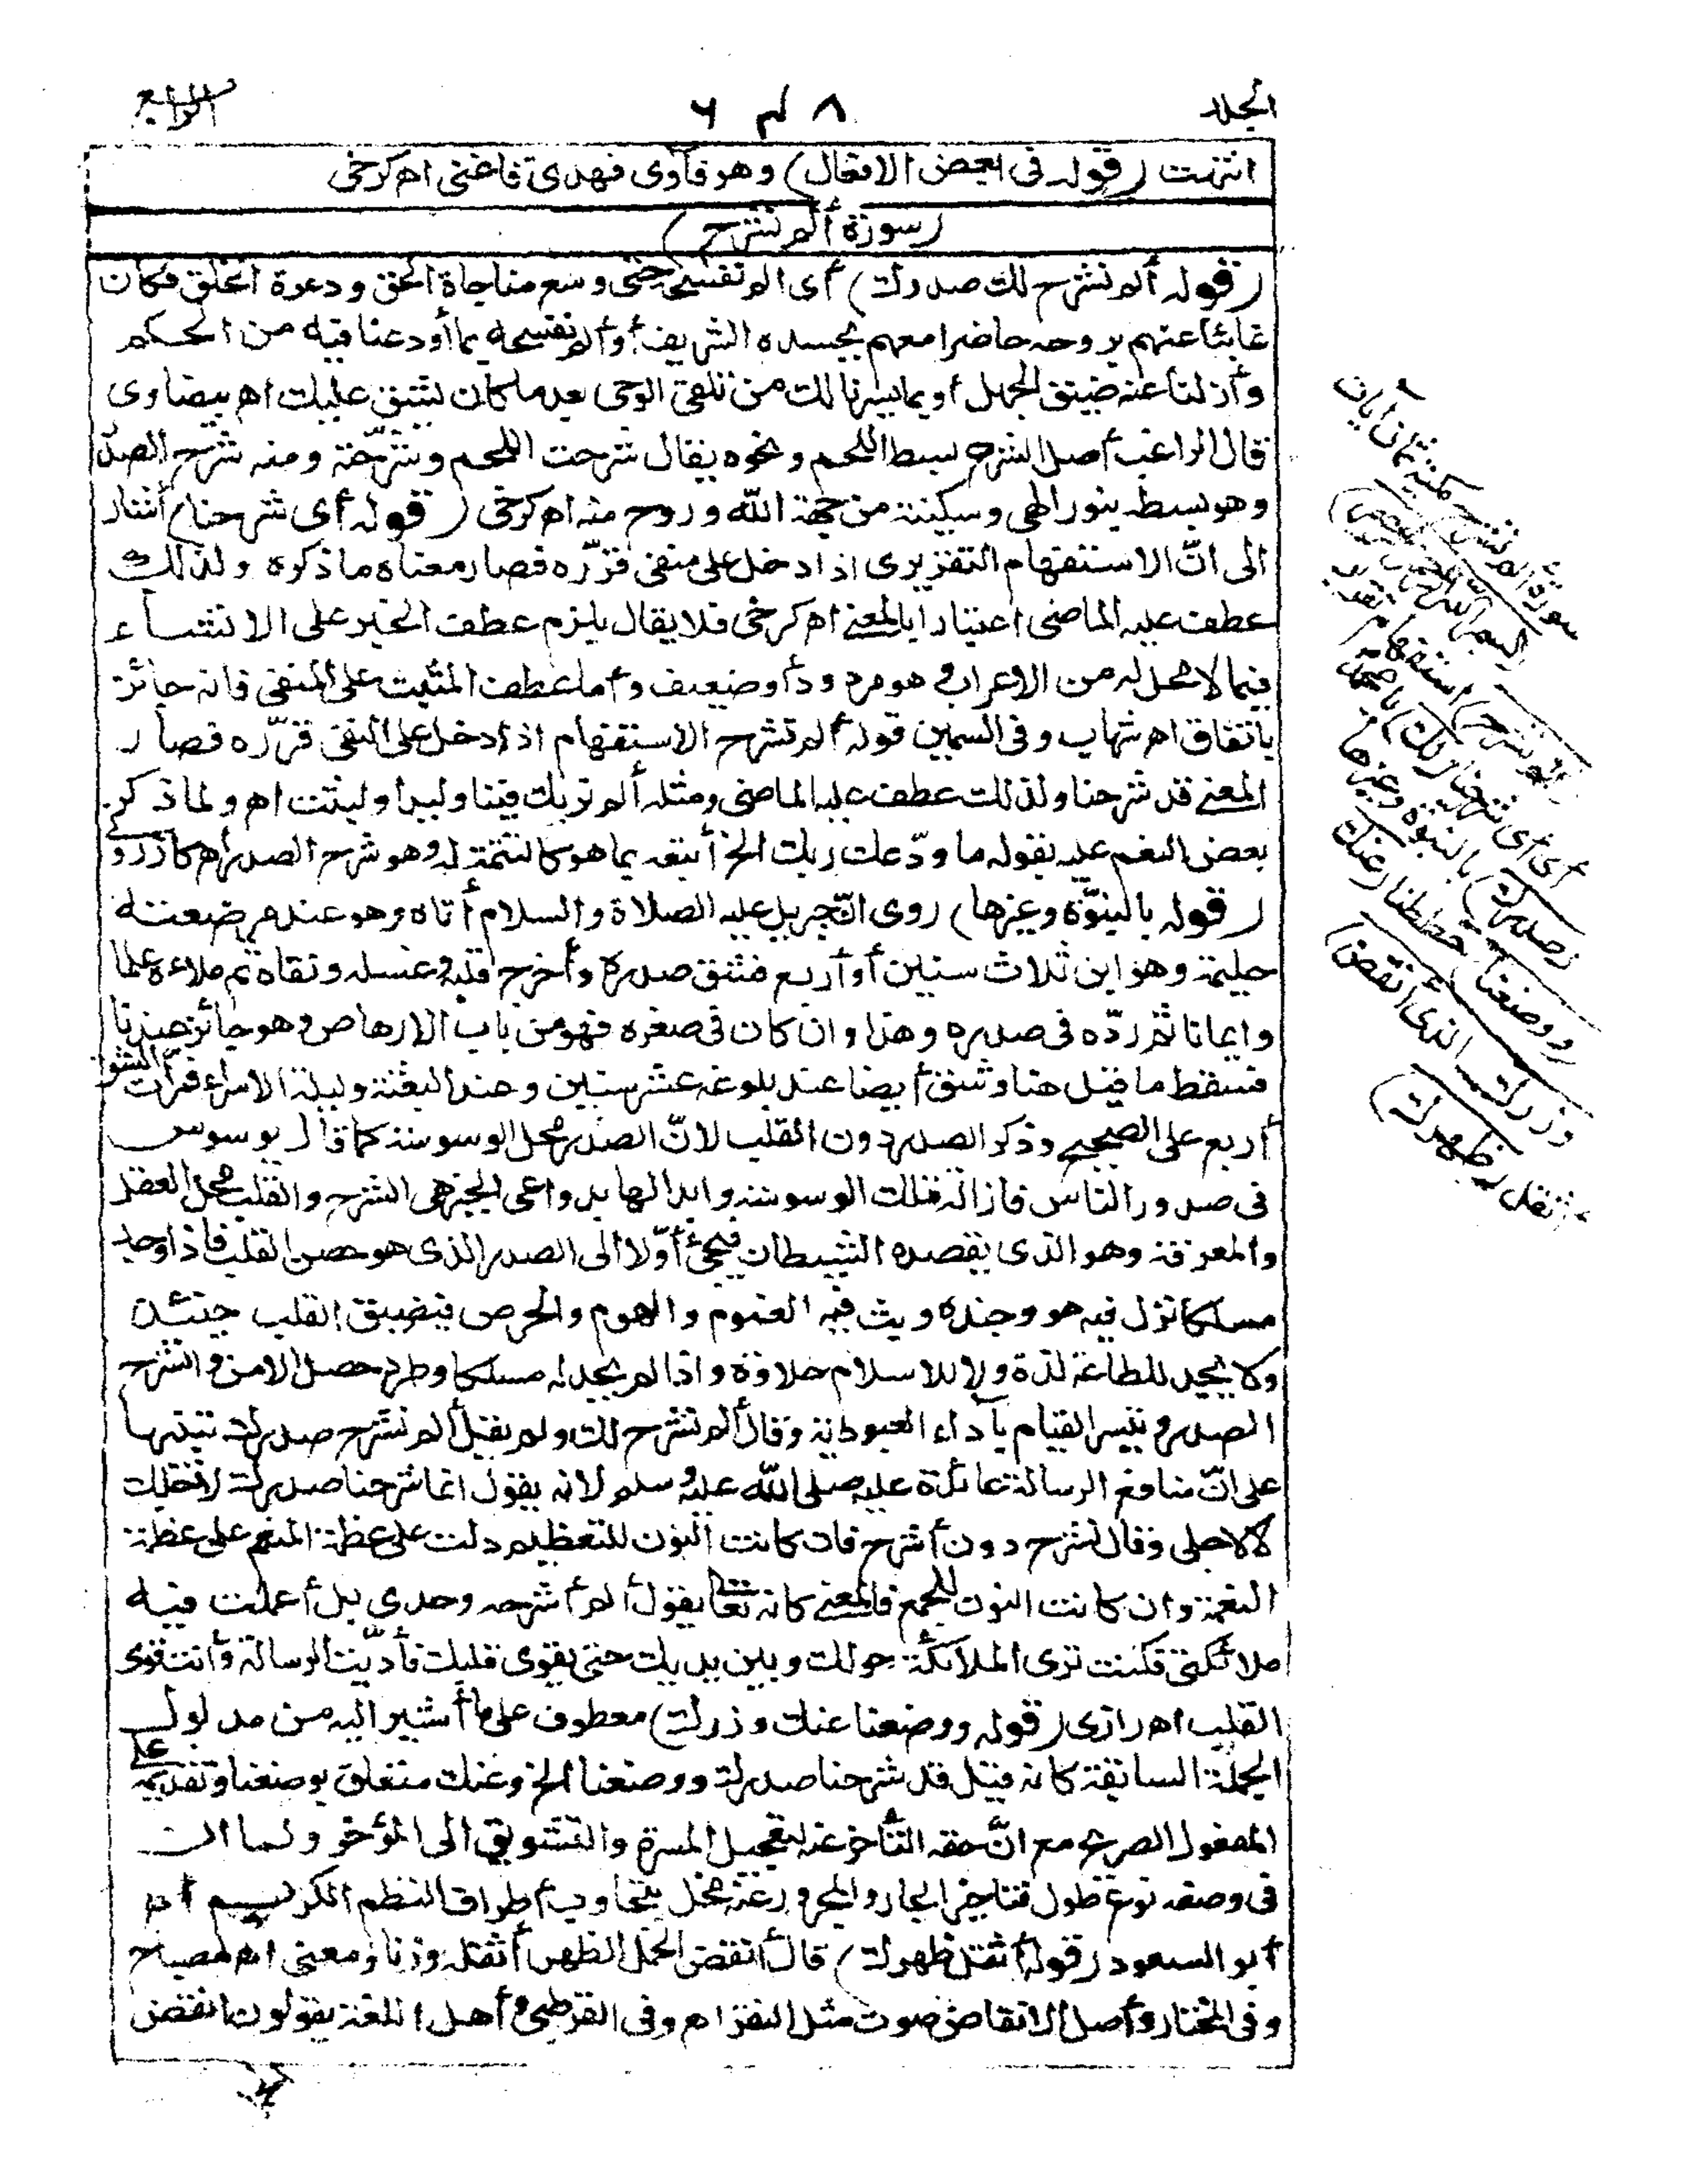 المجلد ٨ ٤ ٦ الرابع
انتهت (قوله فى بعض الافعال) وهو فآوى فهدى فاغنى اه كرخى
(سورة ألم نشرح)
(قوله ألم نشرح لك صدرك) أى ألم نفسحه حتى وسع مناجاة الحق ودعوة الخلق فكان
غائبا عنهم بروحه حاضرا معهم بجسده الشريف أو ألم نفسحه بما أودعنا فيه من الحكم
وأزلنا عنه ضيق الجهل أو بما يسرنا لك من تلقى الوحى بعد ما كان يشق عليك اه بيضاوى
قال الراغب أصل الشرح بسط اللحم ونحوه يقال شرحت اللحم وشرّحته ومنه شرح الصدر
وهو بسطه بنور الهى وسكينة من جهة الله وروح منه اه كرخى (قوله أى شرحنا) أشار
الى انّ الاستفهام التقريرى اذا دخل على منفى قرّره فصار معناه ما ذكره ولذلك
عطف عليه الماضى اعتبارا بالمعنى اه كرخى فلا يقال يلزم عطف الخبر على الانشاء
فيما لا محل له من الاعراب وهو مردود أو ضعيف وأما عطف المثبت على المنفى فانه جائز
باتفاق اه شهاب وفى السمين قوله ألم نشرح الاستفهام اذا دخل على النفى قرّره فصار
المعنى قد شرحنا ولذلك عطف عليه الماضى ومثله ألم نربك فينا وليدا ولبثت اه ولما ذكر
بعض النعم عليه بقوله ما ودّعك ربك الخ أتبعه بما هو كالتتمة له وهو شرح الصدر اه كازرونى
(قوله بالنبوّة وغيرها) روى انّ جبريل عليه الصلاة والسلام أتاه وهو عند مرضعته
حليمة وهو ابن ثلاث سنين أو أربع فشق صدره وأخرج قلبه وغسله ونقاه ثم ملاءه علما
وايمانا ثم ردّه فى صدره وهذا وان كان فى صغره فهو من باب الارهاص وهو جائز عندنا
فسقط ما قيل هنا وشق أيضا عند بلوغه عشر سنين وعند البعثة وليلة الاسراء فمرّات الشق
أربع على الصحيح وذكر الصدر دون القلب لانّ الصدر محل الوسوسة كما قال يوسوس
فى صدور الناس فازالة تلك الوسوسة وابدالها بدواعى الخير هى الشرح والقلب محل العقل
والمعرفة وهو الذى يقصده الشيطان فيجئ أوّلا الى الصدر الذى هو حصن القلب فاذا وجد
مسلكا نزل فيه هو وجنده وبث فيه الغموم والهموم والحرص فيضيق القلب حينئذ
ولا يجد للطاعة لذة ولا للاسلام حلاوة واذا لم يجد له مسلكا وطرد حصل الامن وانشرح
الصدر وتيسر القيام بأداء العبودية وقال ألم نشرح لك ولم يقل ألم نشرح صدرك تنبيها
على انّ منافع الرسالة عائدة عليه صلى الله عليه وسلم لانه يقول انما شرحنا صدرك لاجلك
لا لاجلى وقال نشرح دون أشرح فان كانت النون للتعظيم دلت على عظمة المنعم على عظمة
النعمة وان كانت النون للجمع فالمعنى كانه تعالى يقول ألم أشرحه وحدى بل أعملت فيه
ملائكتى فكنت ترى الملائكة حولك وبين يديك حتى يقوى قلبك فأدّيت الرسالة وأنت قوى
القلب اه رازى (قوله ووضعنا عنك وزرك) معطوف على ما أشير اليه من مدلول
الجملة السابقة كانه قيل قد شرحنا صدرك ووضعنا الخ وعنك متعلق بوضعنا وتقديمه على
المفعول الصريح مع انّ حقه التأخر عنه لتعجيل المسرة والتشويق الى المؤخر ولما ان
فى وصفه نوع طول فتاخير الجار والمجرور عنه مخل بتجاوب أطراف النظم الكريم اه
أبو السعود (قوله أثقل ظهرك) قال أنقض الحمل الظهر أثقله وزنا ومعنى اه مصباح
وفى المختار وأصل الانقاض صوت مثل النقر اه وفى القرطبى وأهل اللغة يقولون انقض
سورة ألم نشرح مكية ثمان آيات
(بسم الله الرحمن الرحيم)
(ألم نشرح) استفهام تقرير
أى أى شرحنا (لك) يا محمد
(صدرك) بالنبوّة وغيرها
(ووضعنا) حططنا (عنك
وزرك الذى أنقض)
أثقل (ظهرك)